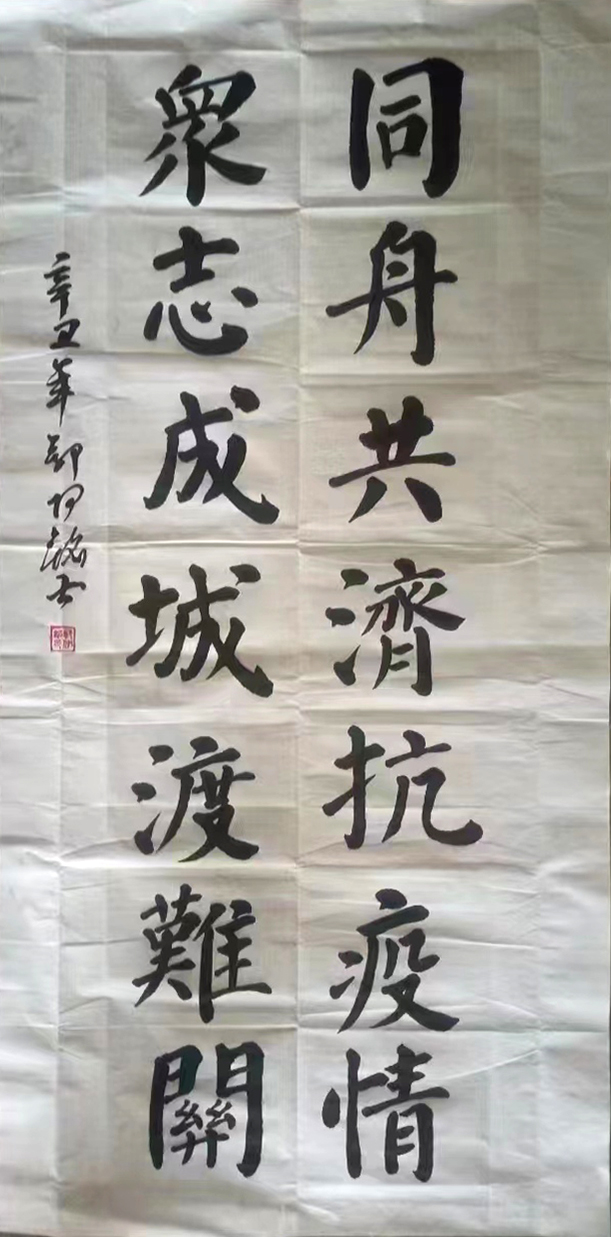 同舟共濟抗疫情
衆志成城渡難關
辛丑年